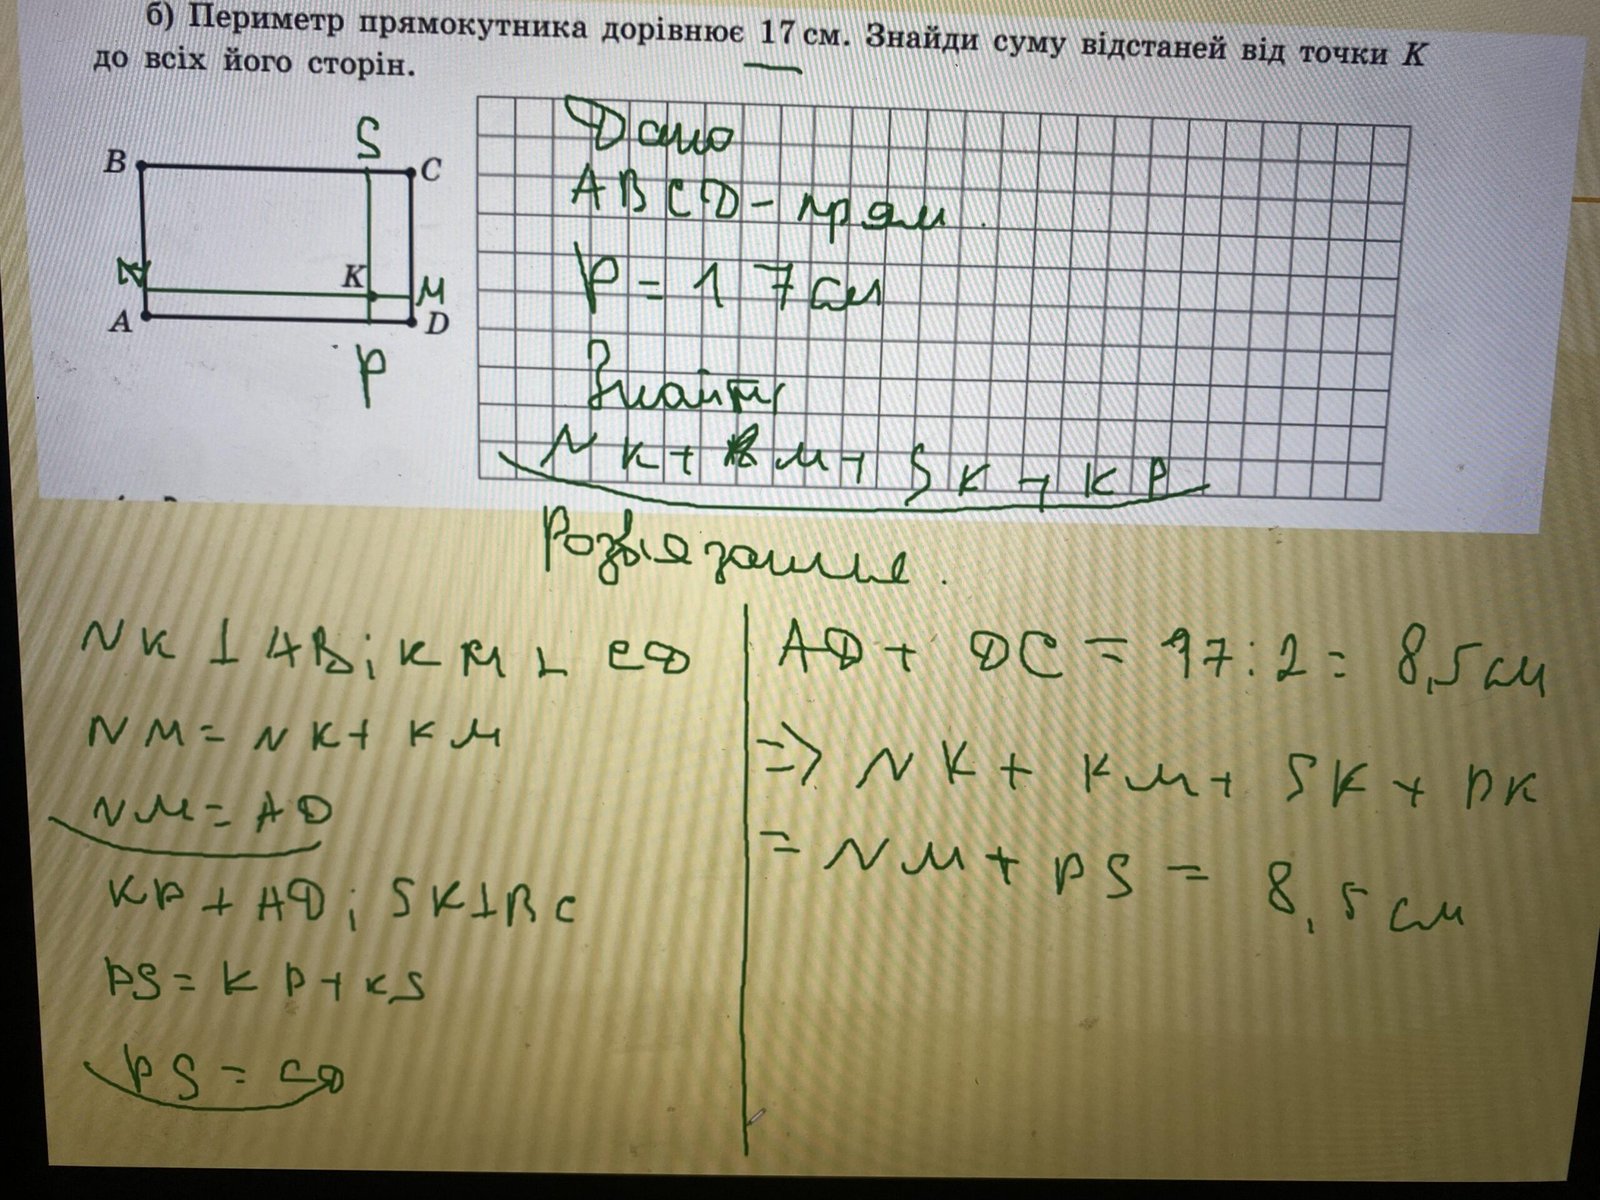 б) Периметр прямокутника дорівнює 17 см. Знайди суму відстаней від точки K
до всіх його сторін.
S
B
C
N
K
M
A
D
P
Дано
ABCD - прям.
P = 17 см
Знайти
NK + KM + SK + KP
Розв'язання.
NK ⊥ AB; KM ⊥ CD
NM = NK + KM
NM = AD
KP ⊥ AD; SK ⊥ BC
PS = KP + KS
PS = CD
AD + DC = 17 : 2 = 8,5 см
=> NK + KM + SK + PK
= NM + PS = 8,5 см